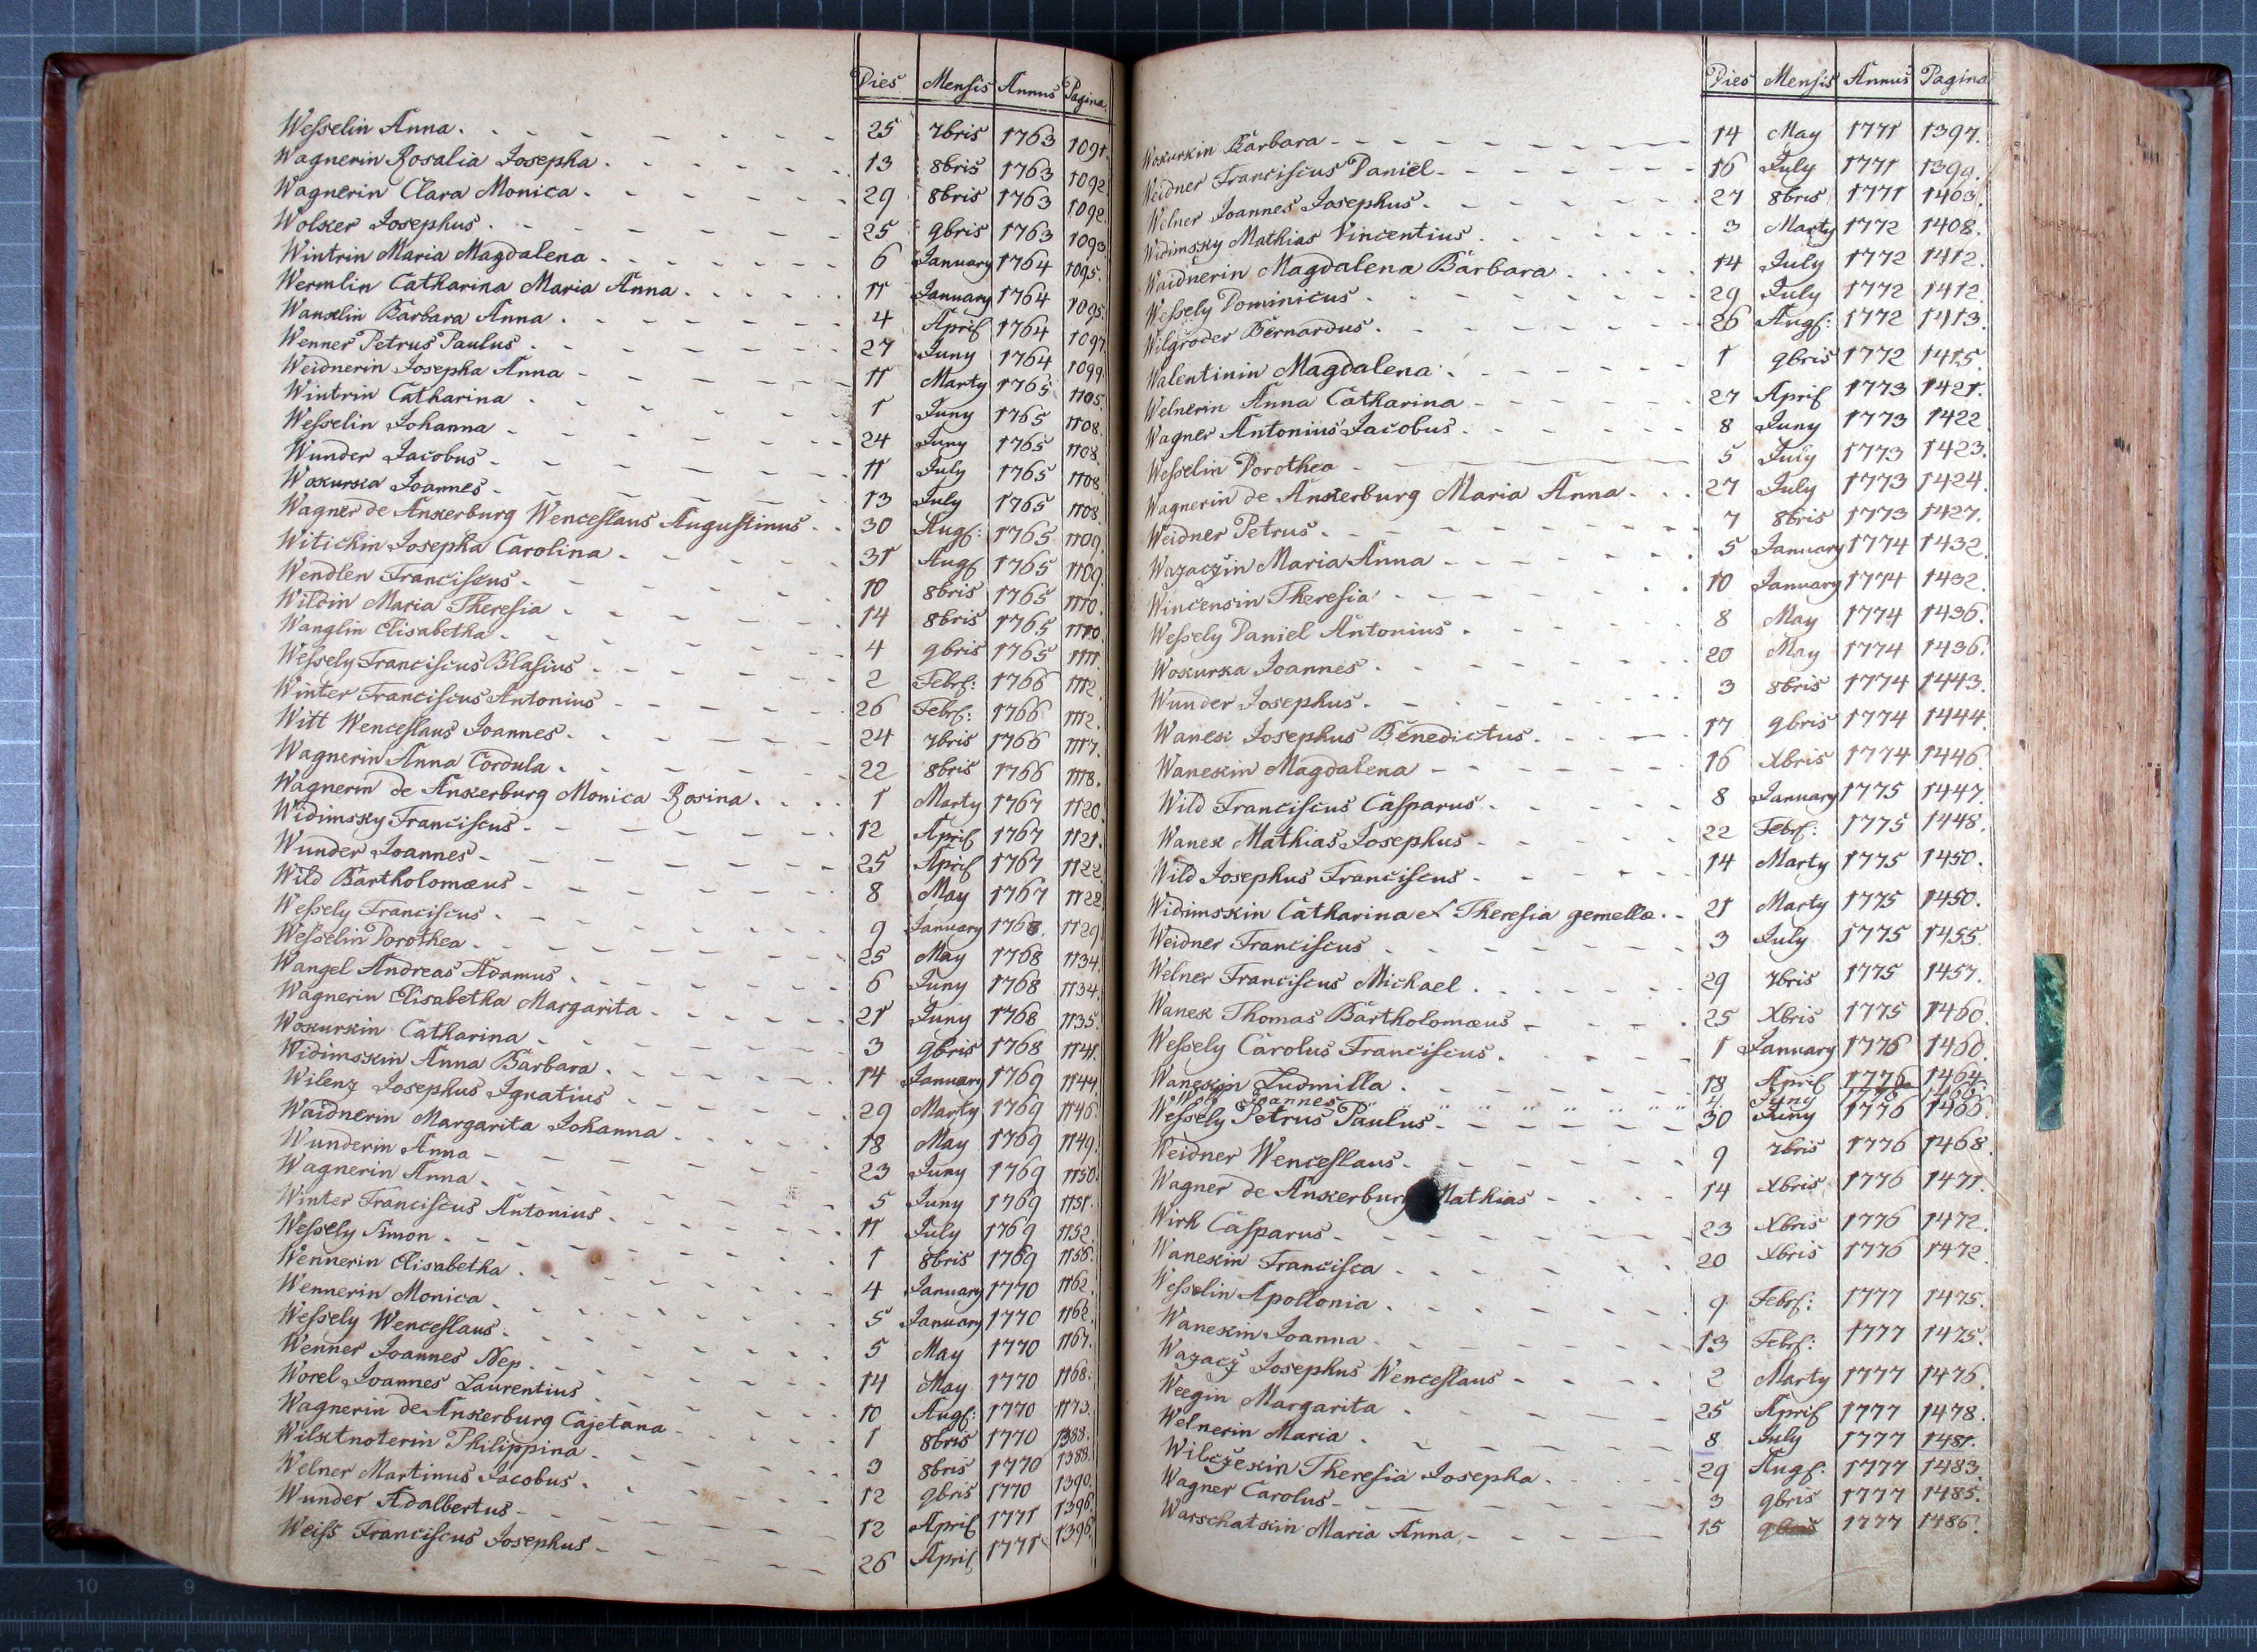 Dies Mensis Annus Pagina
Wesselin Anna. 25 7bris 1763 1091.
Wagnerin Rosalia Josepha. 13 8bris 1763 1092.
Wagnerin Clara Monica. 29 8bris 1763 1092.
Wolker Josephus. 25 9bris 1763 1093
Wintrin Maria Magdalena. 6 January 1764 1095.
Wermlin Catharina Maria Anna. 11 January 1764 1095.
Wanklin Barbara Anna. 4 April 1764 1097.
Wenner Petrus Paulus. 27 Juny 1764 1099.
Weidnerin Josepha Anna 11 Marty 1765 1105.
Wintrin Catharina. 1 Juny 1765 1108.
Wesselin Johanna 24 Juny 1765 1108.
Wunder Jacobus. 11 July 1765 1108.
Wokurka Joannes. 13 July 1765 1108.
Wagner de Ankerburg Wenceslaus Augustinus. 30 Aug: 1765 1109.
Witichin Josepha Carolina. 31 Aug 1765 1109.
Wendlen Franciscus. 10 8bris 1765 1110.
Wildin Maria Theresia. 14 8bris 1765 1110.
Wanglin Elisabetha. 4 9bris 1765 1111.
Wessely Franciscus Blasius. 2 Febr: 1766 1112.
Winter Franciscus Antonius 26 Febr: 1766 1112.
Witt Wenceslaus Joannes. 24 7bris 1766 1117.
Wagnerin Anna Cordula. 22 8bris 1766 1118.
Wagnerin de Ankerburg Monica Rosina. 1 Marty 1767 1120.
Widimsky Franciscus. 12 April 1767 1121.
Wunder Joannes. 25 April 1767 1122.
Wild Bartholomæus 8 May 1767 1122.
Wessely Franciscus. 9 January 1768. 1129.
Wesselin Dorothea. 25 May 1768 1134.
Wangel Andreas Adamus. 6 Juny 1768 1134.
Wagnerin Elisabetha Margarita. 21 Juny 1768 1135.
Wokurkin Catharina. 3 9bris 1768 1141.
Widimskin Anna Barbara. 14 January 1769 1144.
Wilenz Josephus Ignatius 29 Marty 1769 1146.
Waidnerin Margarita Johanna. 18 May 1769 1149.
Wunderin Anna 23 Juny 1769 1150.
Wagnerin Anna. 5 Juny 1769 1151.
Winter Franciscus Antonius. 11 July 1769 1152.
Wessely Simon. 1 8bris 1769 1156.
Wennerin Elisabetha. 4 January 1770 1162.
Wennerin Monica. 5 January 1770 1162.
Wessely Wenceslaus. 5 May 1770 1167.
Wenner Joannes Nep. 14 May 1770 1168.
Worel Joannes Laurentius. 10 Aug: 1770 1173.
Wagnerin de Ankerburg Cajetana. 1 8bris 1770 1388.
Wilktnoterin Philippina. 3 8bris 1770 1388.
Welner Martinus Jacobus. 12 9bris 1770 1390.
Wunder Adalbertus. 12 April 1771 1396.
Weiss Franciscus Josephus 26 April 1771 1396.
Dies Mensis Annus Pagina
Wokurkin Barbara 14 May 1771 1397.
Weidner Franciscus Daniel 16 July 1771 1399.
Welner Joannes Josephus. 27 8bris 1771 1403.
Widimsky Mathias Vincentius. 3 Marty 1772 1408.
Waidnerin Magdalena Barbara. 14 July 1772 1412.
Wessely Dominicus. 29 July 1772 1412.
Wilgröder Bernardus. 26 Aug: 1772 1413.
Walentinin Magdalena. 1 9bris 1772 1415.
Welnerin Anna Catharina 27 April 1773 1421.
Wagner Antonius Jacobus. 8 Juny 1773 1422
Wesselin Dorothea 5 July 1773 1423.
Wagnerin de Ankerburg Maria Anna. 27 July 1773 1424.
Weidner Petrus. 7 8bris 1773 1427.
Wazaczin Maria Anna 5 January 1774 1432.
Wincensin Theresia 10 January 1774 1432.
Wessely Daniel Antonius. 8 May 1774 1436.
Wokurka Joannes. 20 May 1774 1436.
Wunder Josephus. 3 8bris 1774 1443.
Wanek Josephus Benedictus. 17 9bris 1774 1444
Wanekin Magdalena 16 Xbris 1774 1446.
Wild Franciscus Casparus. 8 January 1775 1447.
Wanek Mathias Josephus 22 Febr: 1775 1448.
Wild Josephus Franciscus. 14 Marty 1775 1450.
Widimskin Catharina et Theresia gemellæ. 21 Marty 1775 1450.
Weidner Franciscus 3 July 1775 1455.
Welner Franciscus Michael. 29 7bris 1775 1457.
Wanek Thomas Bartholomæus 25 Xbris 1775 1460.
Wessely Carolus Franciscus. 1 January 1776 1460.
Wanekin Ludmilla. 18 April 1776 1464.
Joannes 4 Juny 1776 1466.
Wessely Petrus Paulus. 30 Juny 1776 1466.
Weidner Wenceslaus. 9 7bris 1776 1468.
Wagner de Ankerburg Mathias 14 Xbris 1776 1471.
Wirh Casparus. 23 Xbris 1776 1472.
Wanekin Francisca 20 Xbris 1776 1472
Wesselin Apollonia. 9 Febr: 1777 1475.
Wanekin Joanna. 13 Febr: 1777 1475.
Wazacz Josephus Wenceslaus 2 Marty 1777 1476.
Weegin Margarita. 25 April 1777 1478.
Welnerin Maria. 8 July 1777 1481.
Wilczekin Theresia Josepha. 29 Aug: 1777 1483.
Wagner Carolus. 3 9bris 1777 1485.
Warschatkin Maria Anna. 15 9bris 1777 1486.